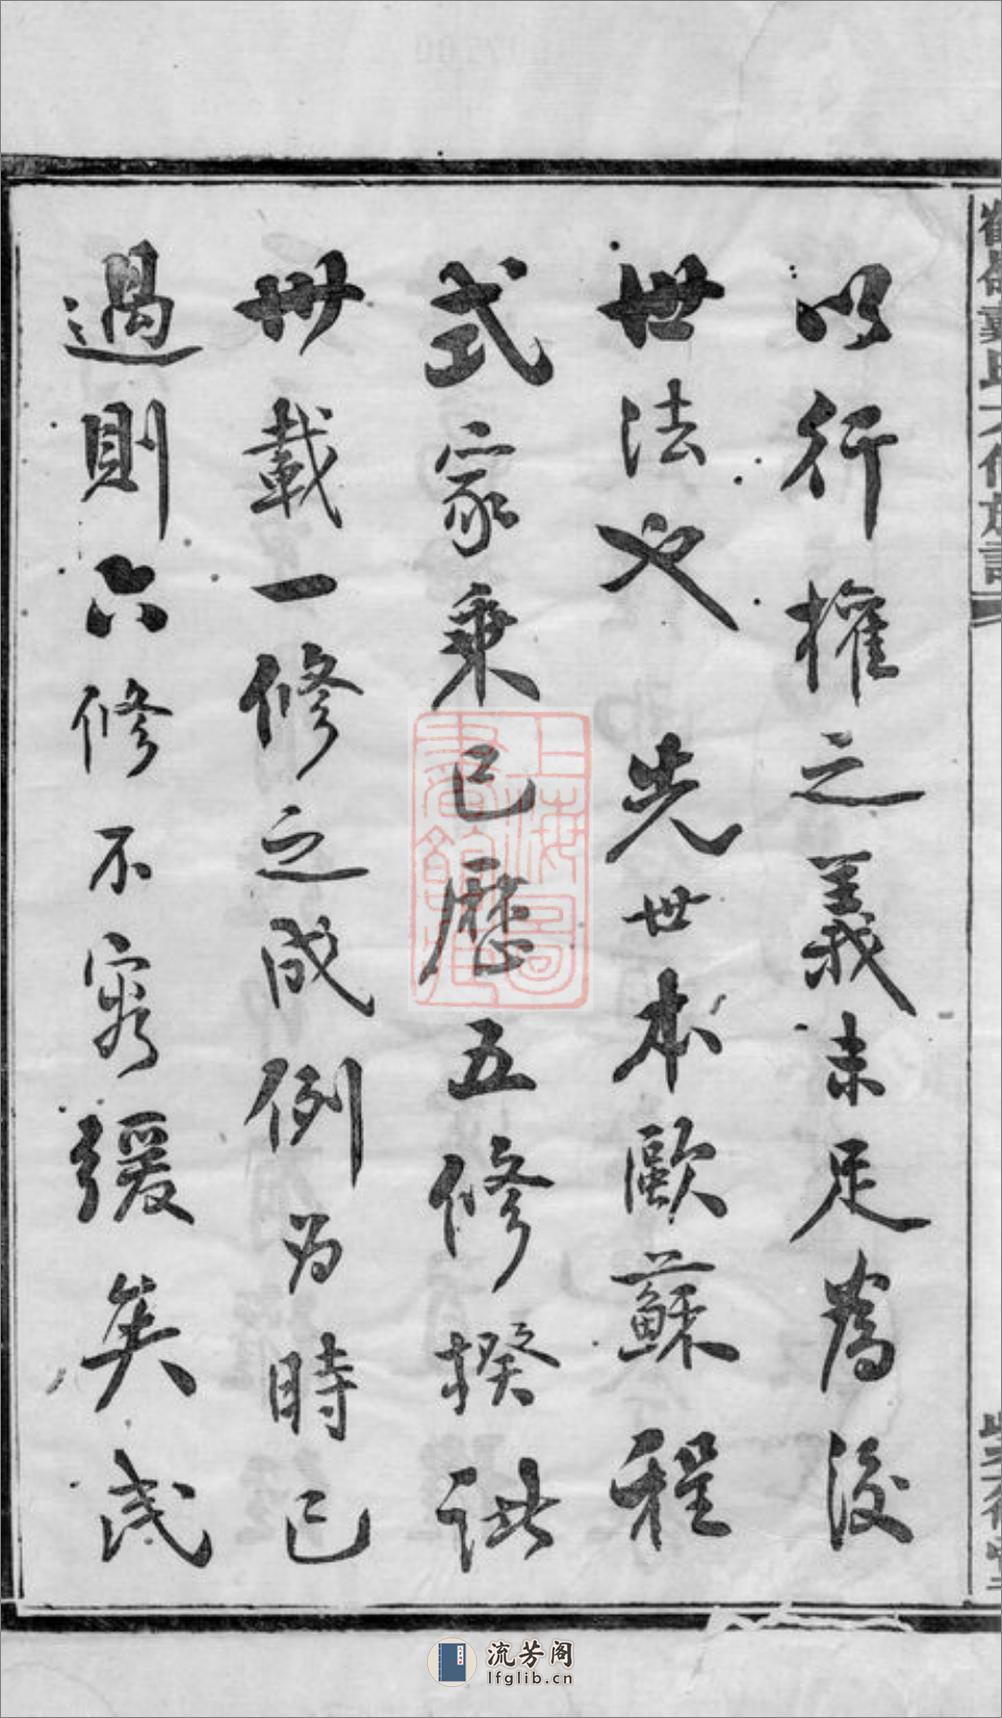 以行權之義未足為後
世法也　先世本歐蘇程
式家乘已歷五修揆諸
卅載一修之成例為時已
過則六修不容緩矣戊
上海圖書館藏
流芳阁
lfglib.cn